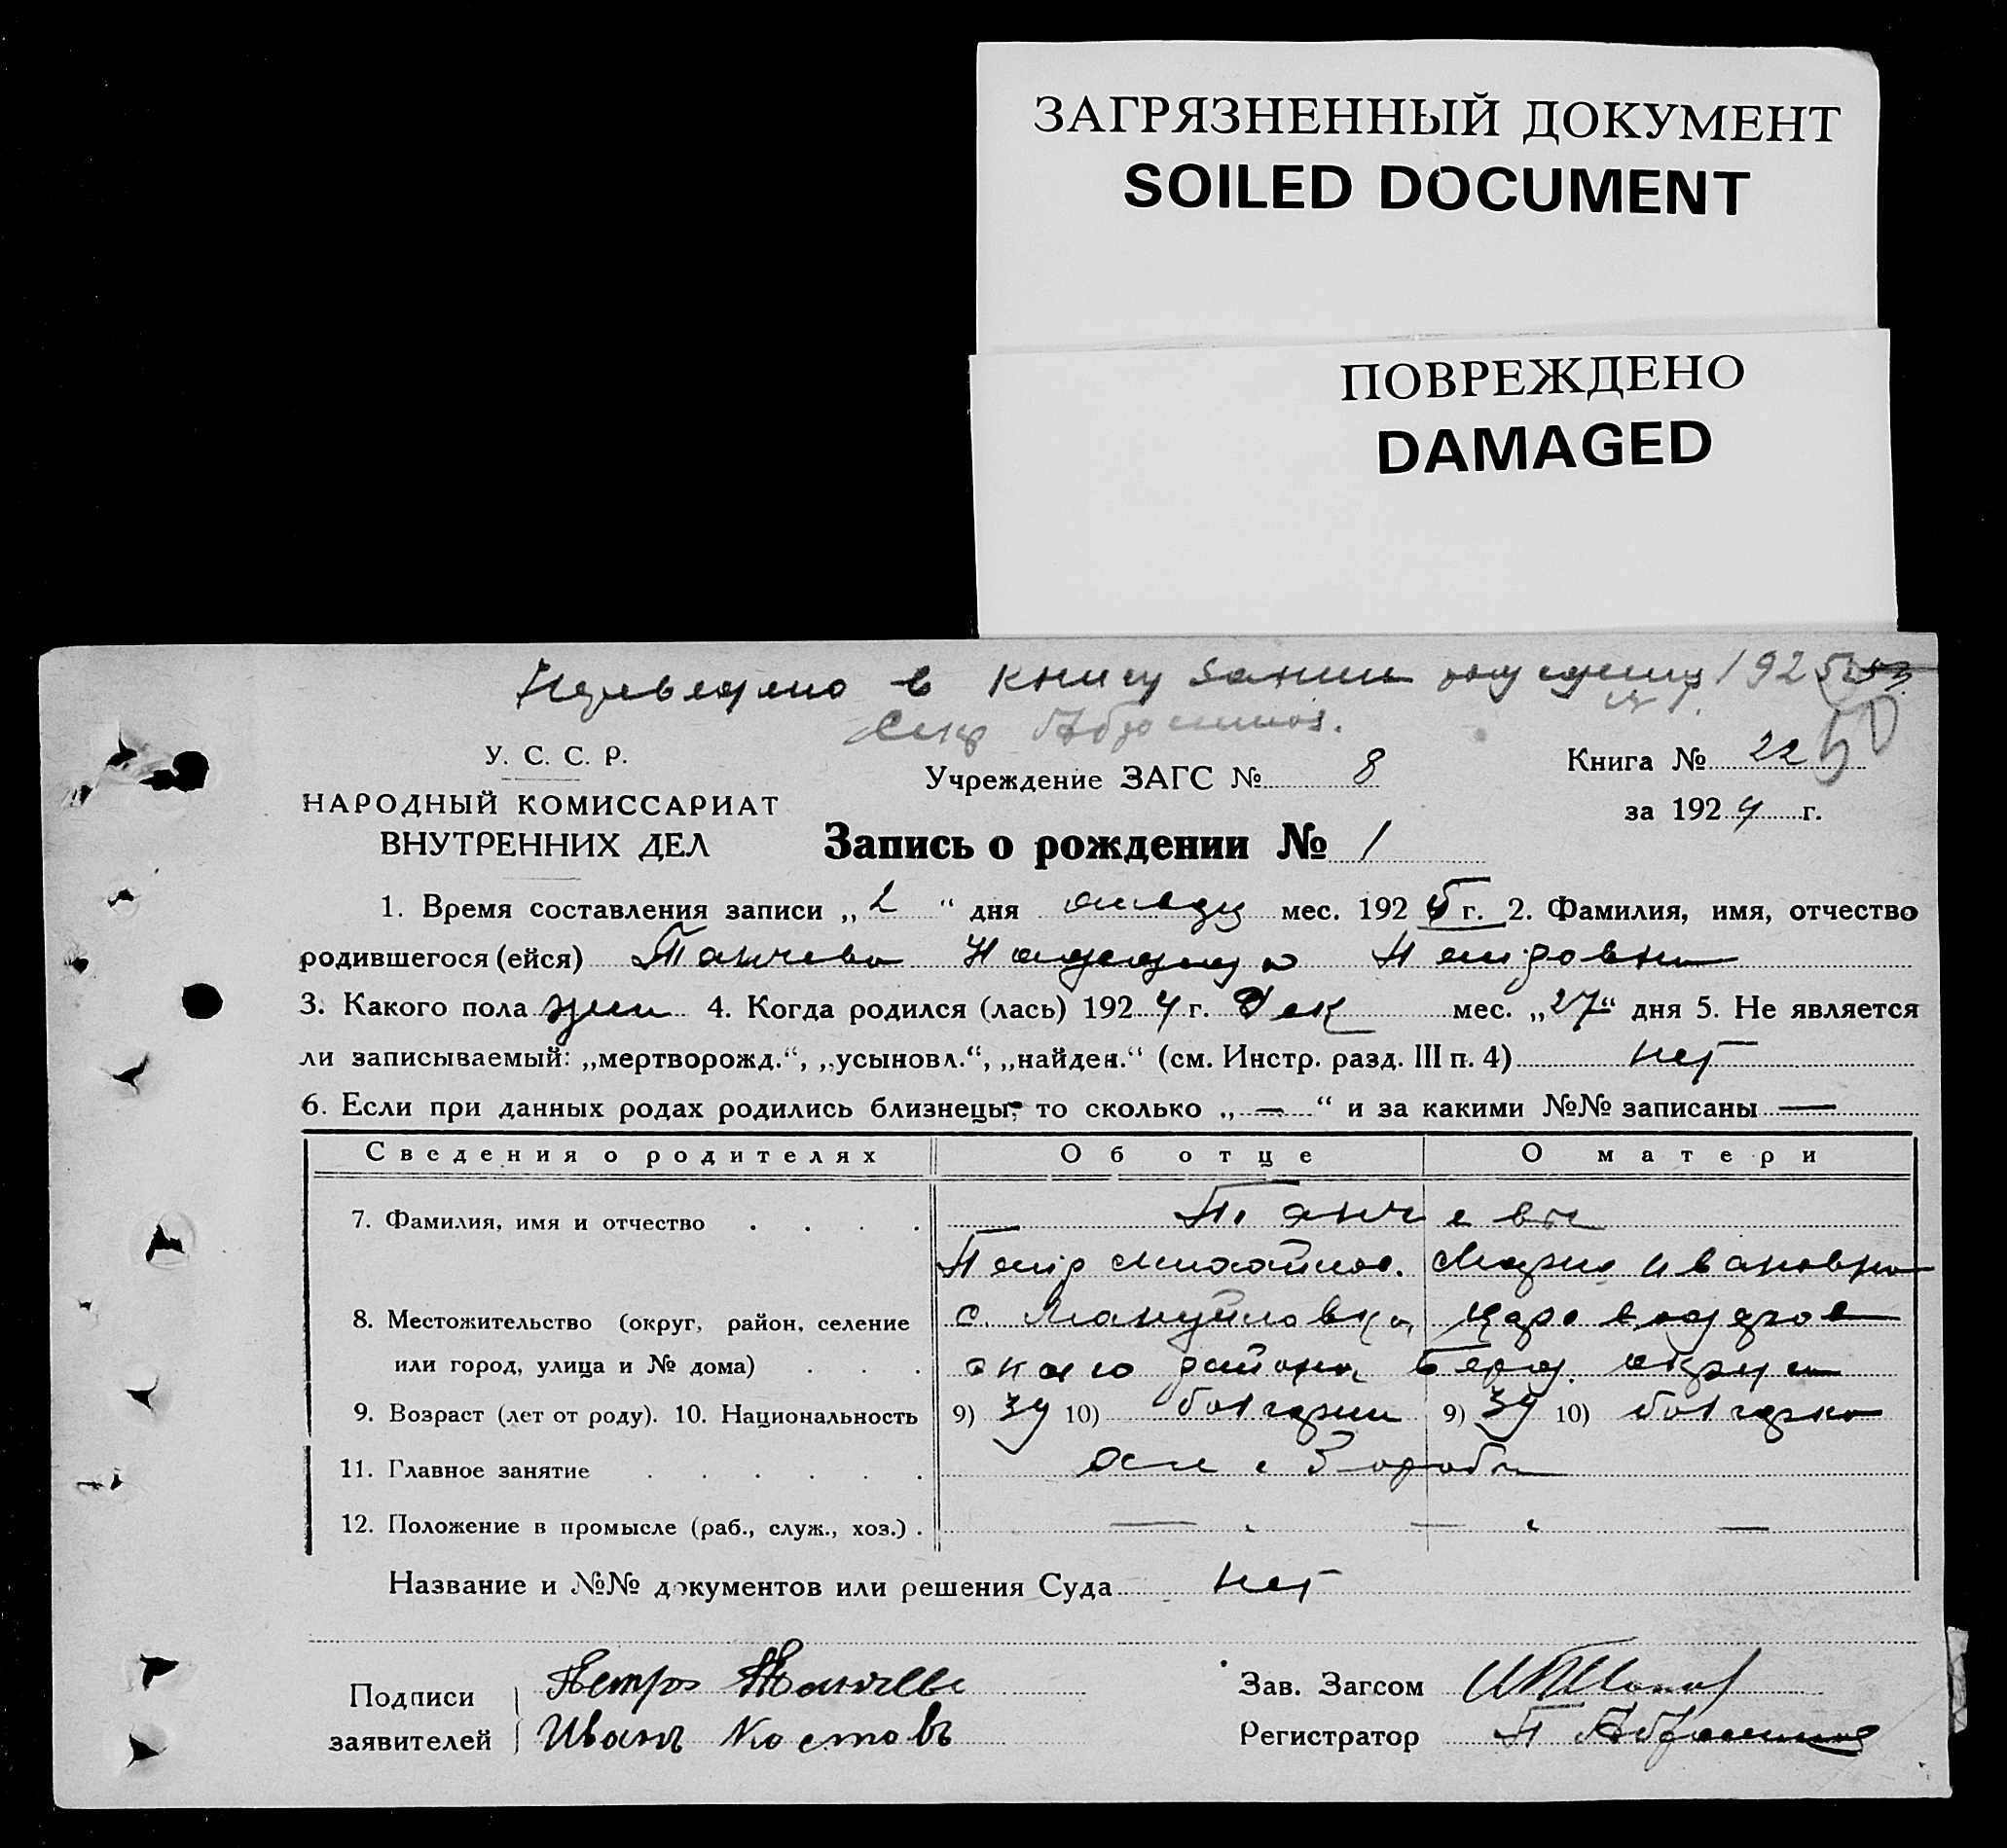 ЗАГРЯЗНЕННЫЙ ДОКУМЕНТ
SOILED DOCUMENT
ПОВРЕЖДЕНО
DAMAGED
в книгу 1925
Секр
У. С. С. Р.
Учреждение ЗАГС № 8
Книга № 22 50
НАРОДНЫЙ КОМИССАРИАТ
за 1924 г.
ВНУТРЕННИХ ДЕЛ
Запись о рождении № 1
1. Время составления записи „2“ дня мес. 1925 г. 2. Фамилия, имя, отчество
родившегося (ейся) Танчева Надежда Петровна
3. Какого пола жен 4. Когда родился (лась) 1924 г. Дек мес. „27“ дня 5. Не является
ли записываемый: „мертворожд.“, „усыновл.“, „найден.“ (см. Инстр. разд. III п. 4) нет
6. Если при данных родах родились близнецы, то сколько „—“ и за какими №№ записаны —
Сведения о родителях Об отце О матери
7. Фамилия, имя и отчество Танчевы
Петр Михайлов. Мария Ивановна
8. Местожительство (округ, район, селение с. Мануйловка, Цареводаров
или город, улица и № дома) ского района Берд. округа
9. Возраст (лет от роду). 10. Национальность 9) 39 10) болгарин 9) 39 10) болгарка
11. Главное занятие
12. Положение в промысле (раб., служ., хоз.) — — —
Название и №№ документов или решения Суда нет
Подписи Петръ Танчевъ Зав. Загсом
заявителей Иванъ Костовъ Регистратор